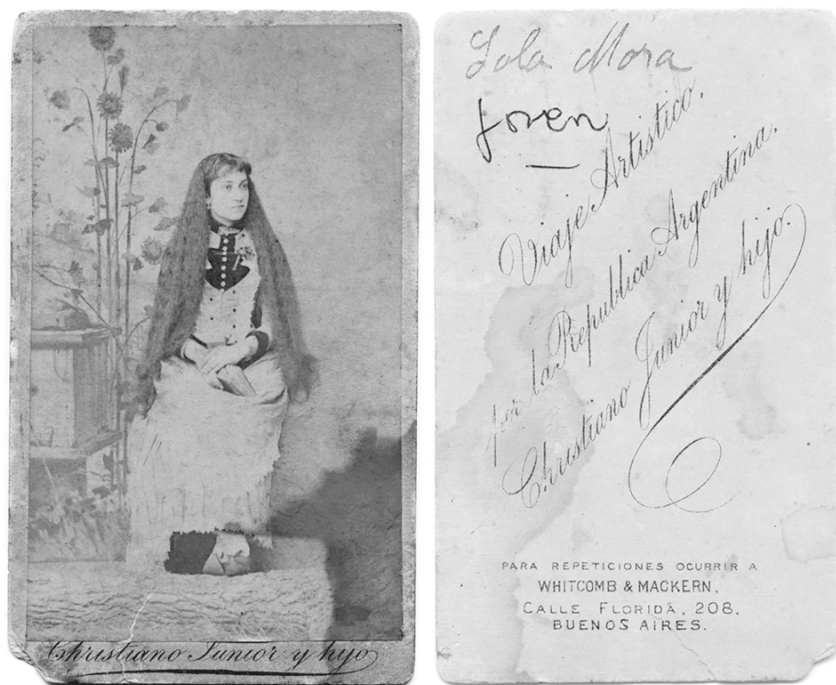 Christiano Junior y hijo
Lola Mora
Joven
Viaje Artistico.
por la Republica Argentina.
Christiano Junior y hijo.
PARA REPETICIONES OCURRIR A
WHITCOMB & MACKERN,
CALLE FLORIDA, 208.
BUENOS AIRES.